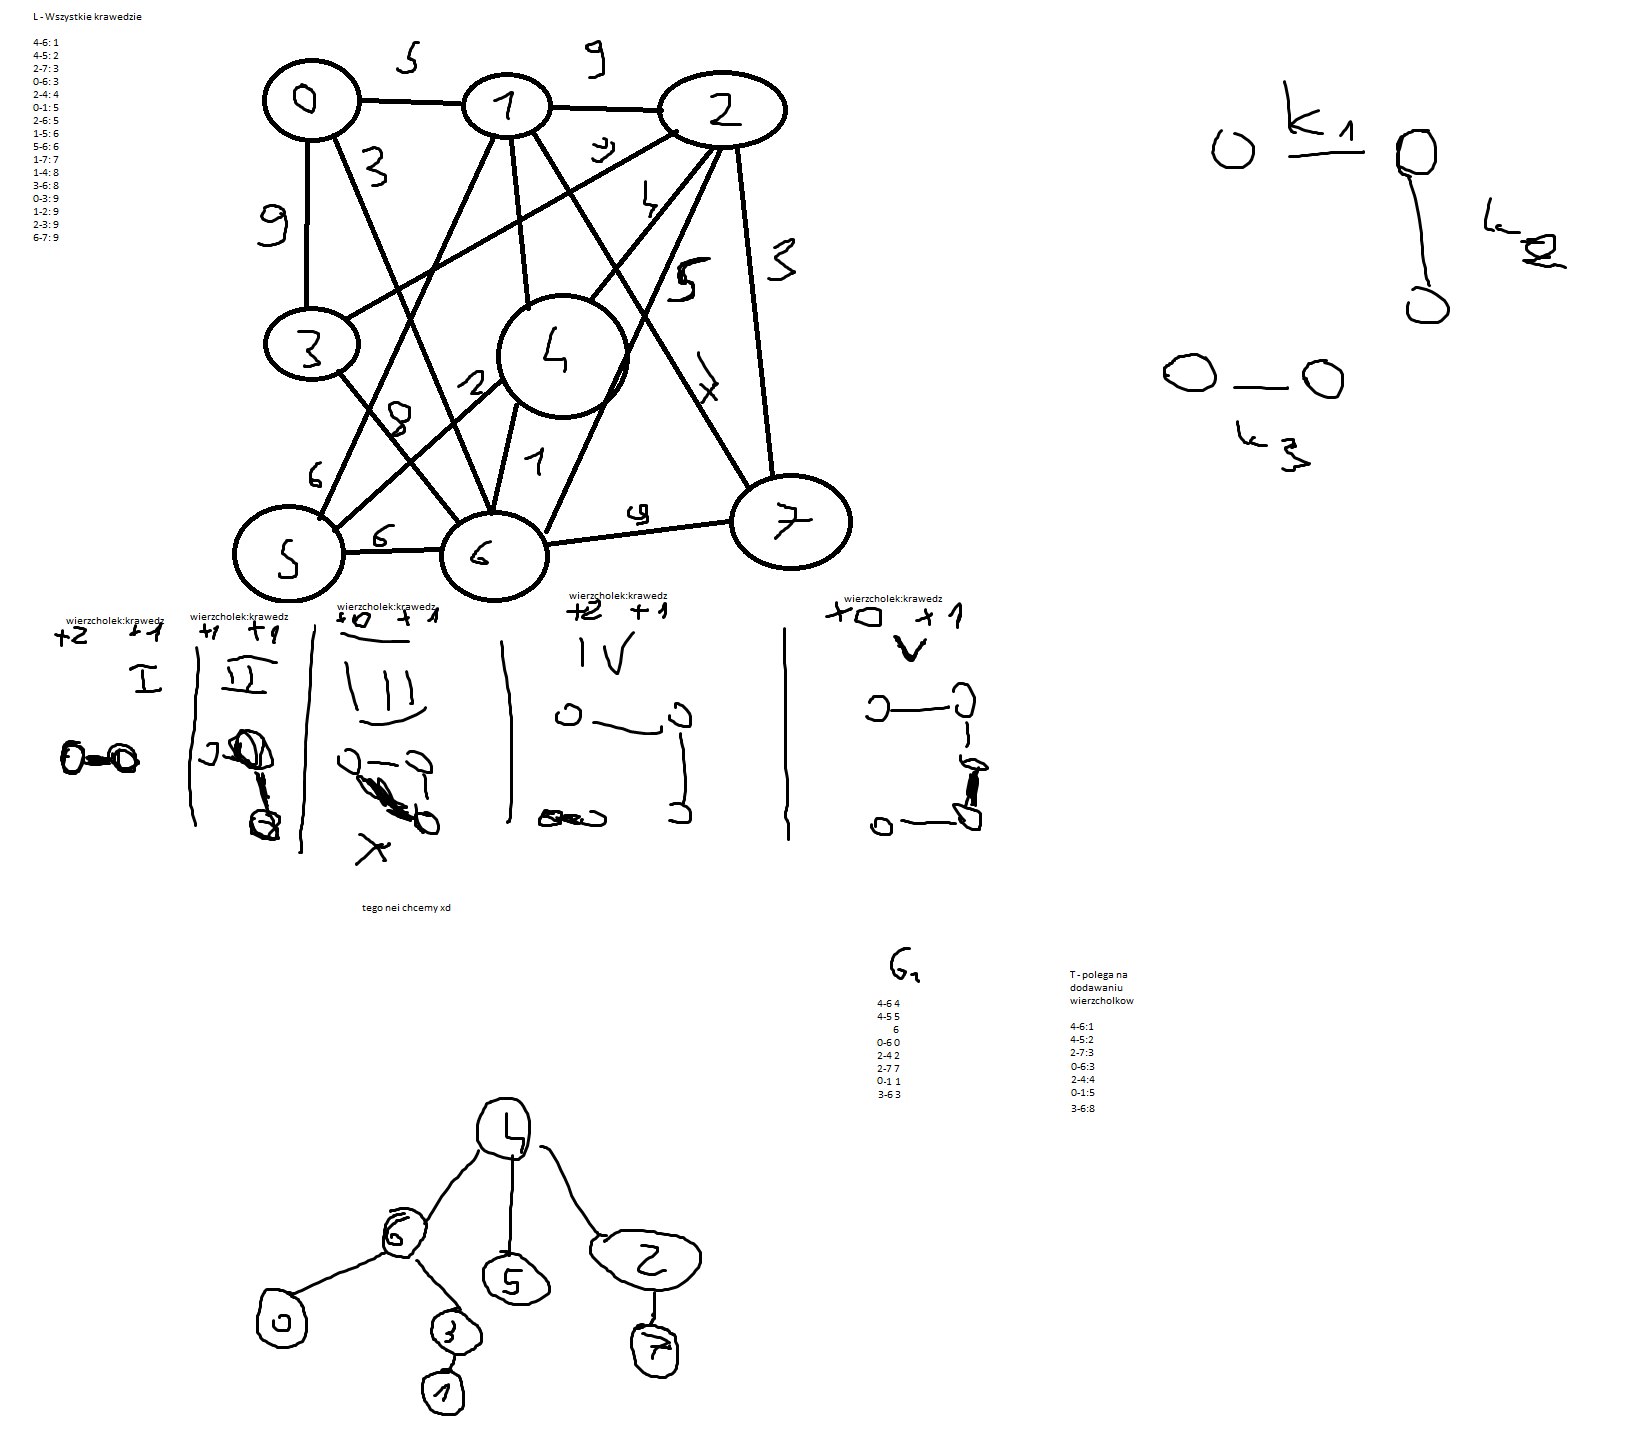 L - Wszystkie krawedzie
4-6: 1
4-5: 2
2-7: 3
0-6: 3
2-4: 4
0-1: 5
2-6: 5
1-5: 6
5-6: 6
1-7: 7
1-4: 8
3-6: 8
0-3: 9
1-2: 9
2-3: 9
6-7: 9
5 9
0 1 2
3 9
4
9 5 3
3 4
2 7
8
6 1
9
6
5 6 7
k1
k2
k3
wierzcholek:krawedz
+2 +1
I
wierzcholek:krawedz
+1 +1
II
wierzcholek:krawedz
+0 +1
III
X
tego nei chcemy xd
wierzcholek:krawedz
+2 +1
IV
wierzcholek:krawedz
+0 +1
V
G1
4-6 4
4-5 5
6
0-6 0
2-4 2
2-7 7
0-1 1
3-6 3
T - polega na
dodawaniu
wierzcholkow
4-6:1
4-5:2
2-7:3
0-6:3
2-4:4
0-1:5
3-6:8
4
6 5 2
0 3 7
1